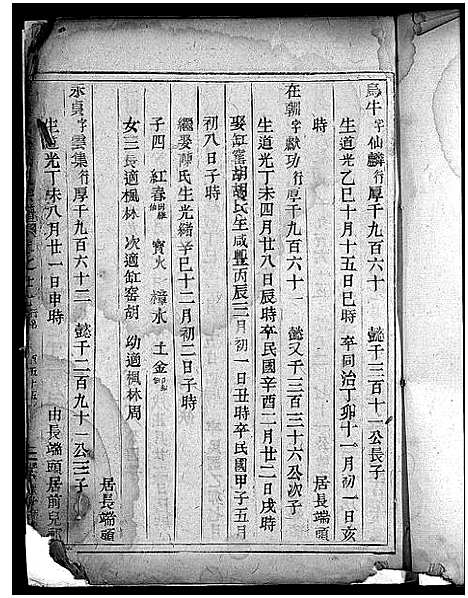 烏牛字仙麟行厚千九百六十 懿千三百十一公長子
生道光乙巳十月十五日巳時卒同治丁卯十一月初一日亥
時 居長端頭
在朝字獻功行厚千九百六十一 懿又千三百三十六公次子
生道光丁未四月廿八日辰時卒民國辛酉二月廿二日戌時
娶缸窰胡胡氏生咸豐丙辰二月初一日丑時卒民國甲子五月
初八日子時
繼娶 氏生光緒辛巳十二月初二日子時
子四 紅春 寶火 樟水 土金
女三長適楓林 次適缸窑胡 幼適楓林周
居長端頭
永貞字雲集行厚千九百六十三 懿千二百九十一公三子
生道光丁未八月廿一日申時 由長端頭居前